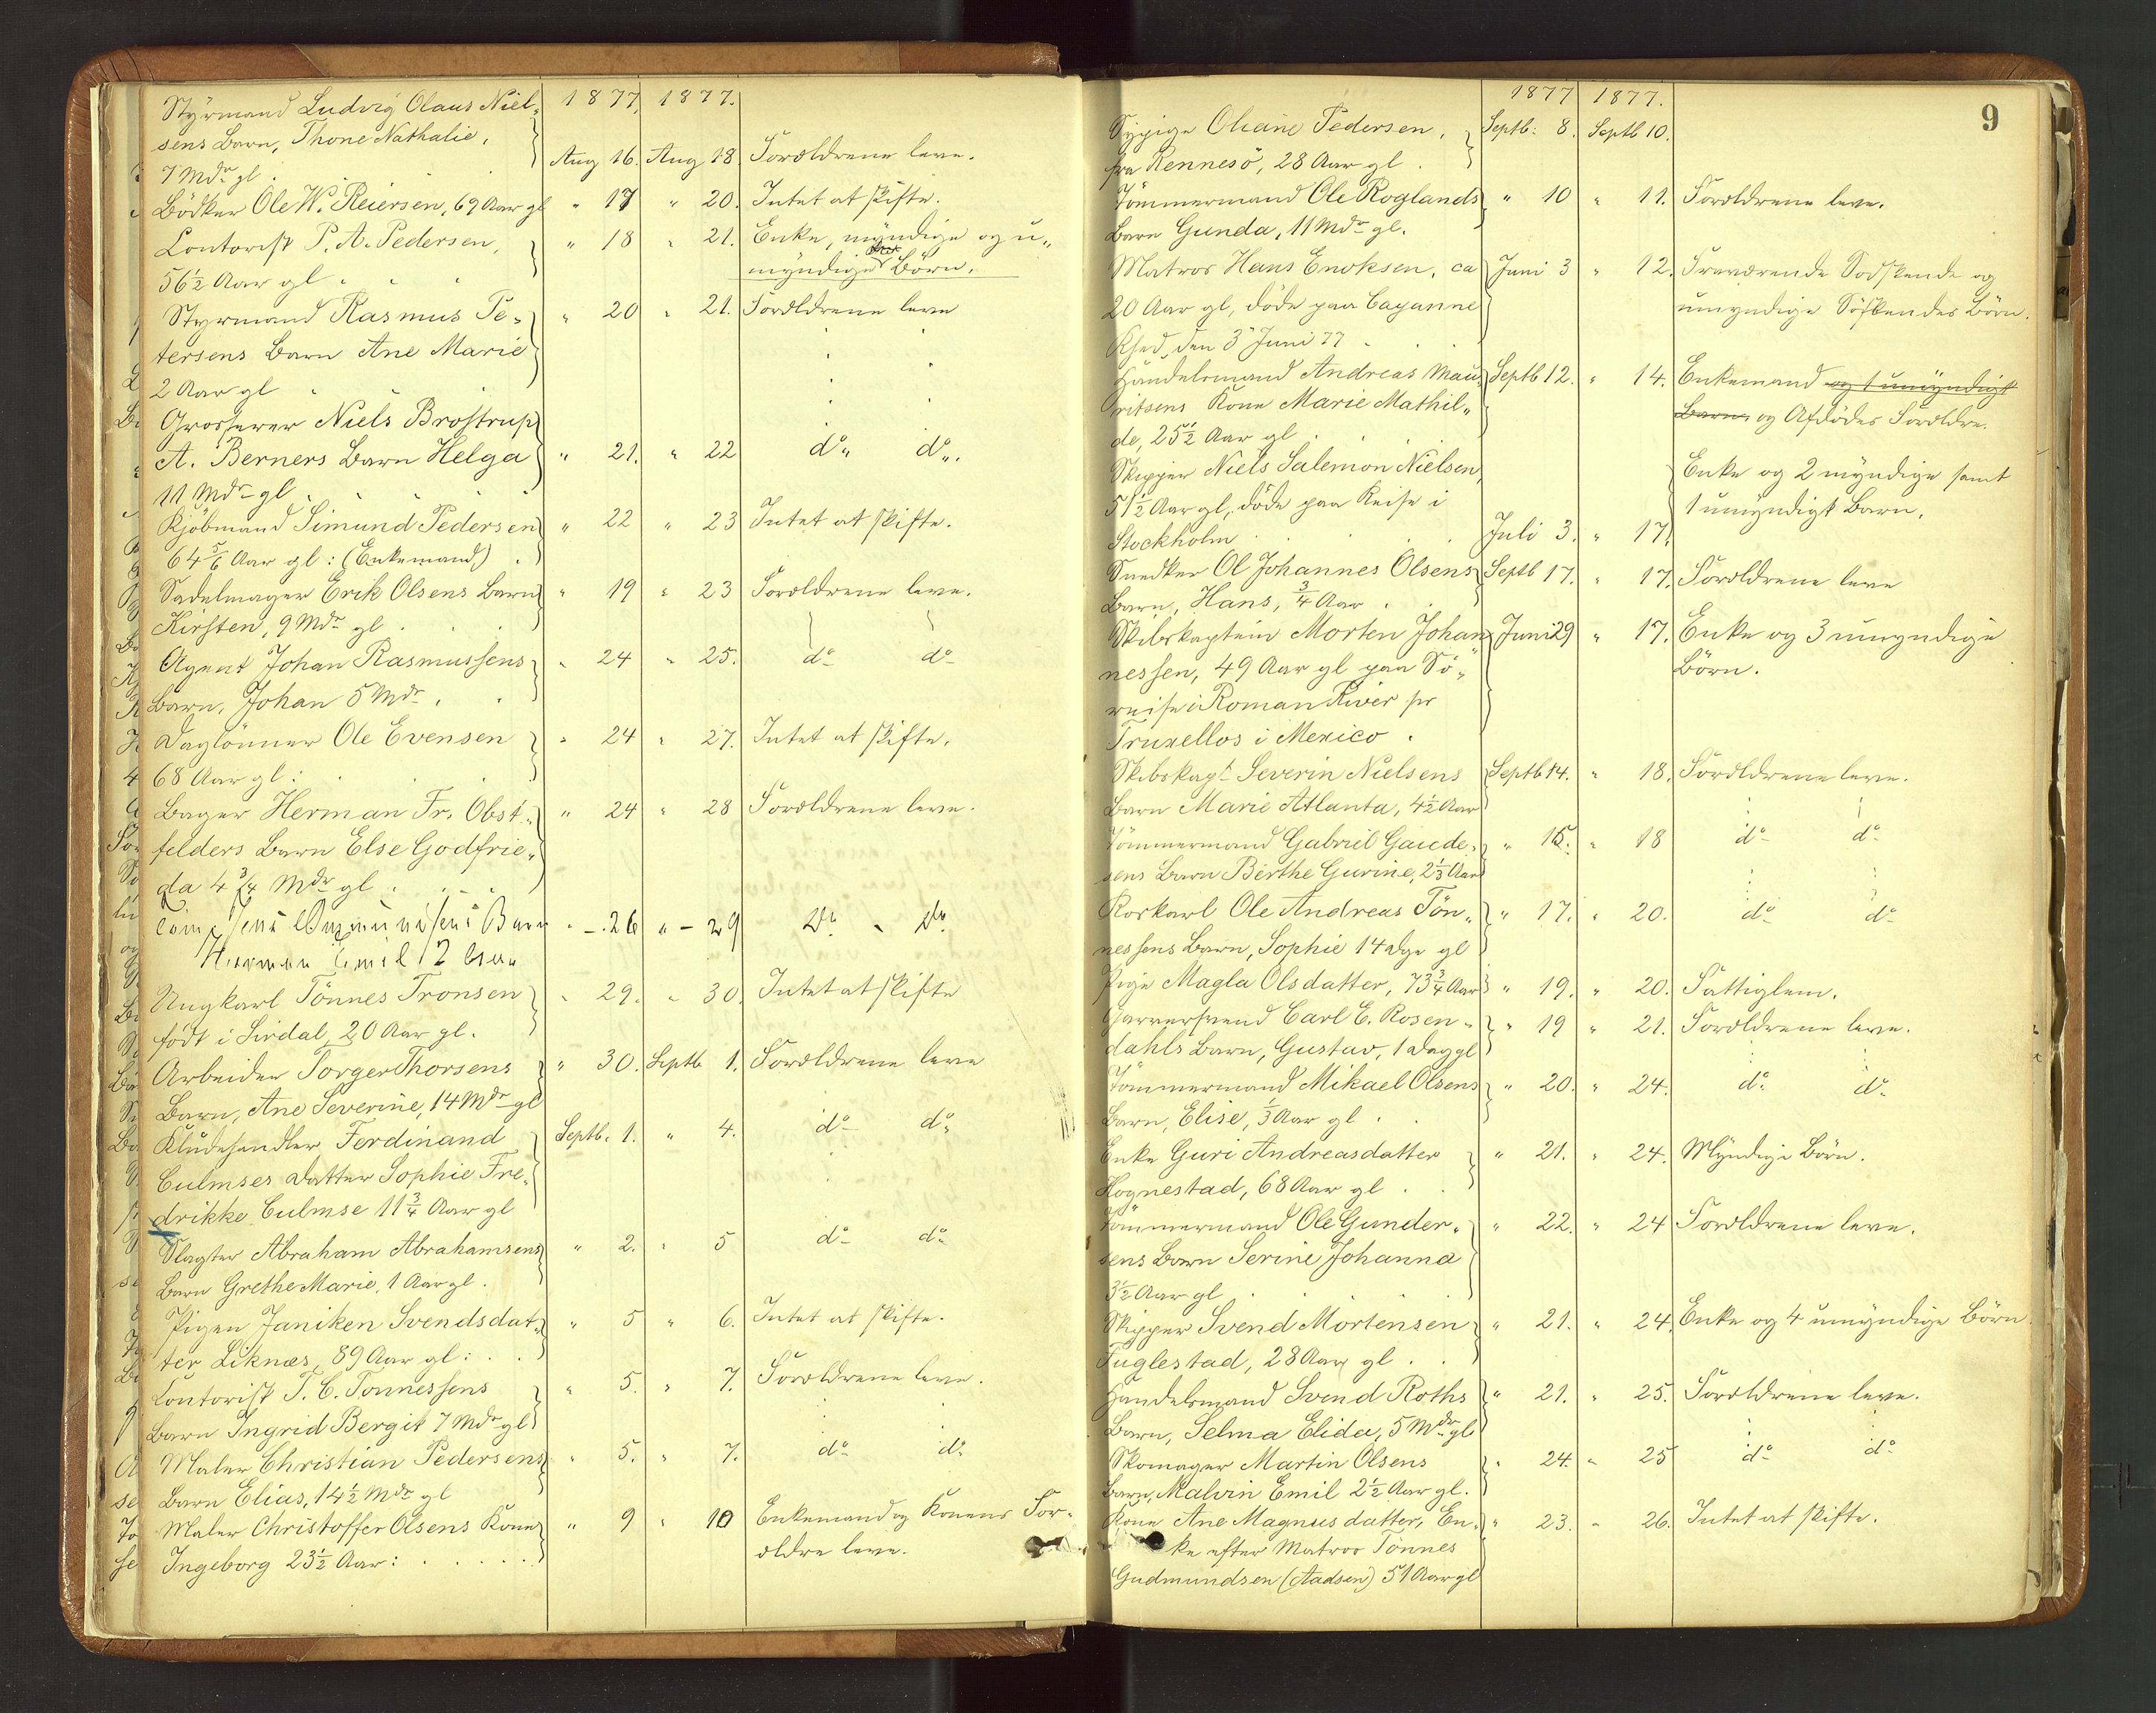 1877 1877.
Styrmand Ludvig Olaus Niel-
sens Barn, Thone Nathalie,
7 Mdr gl. Aug 16. Aug 18 Forældrene leve.
Bödker Ole W. Reiersen, 69 Aar gl " 17 " 20. Intet at skifte.
Contorist P. A. Pedersen, " 18 " 21. Enke, myndige og u-
56½ Aar gl myndige Börn.
Styrmand Rasmus Pe- " 20 " 21. Forældrene leve
tersens Barn Ane Marie
2 Aar gl
Grosserer Niels Brostrup
A. Berners Barn Helga " 21. " 22 do do.
11 Mdr gl.
Kjöbmand Simund Pedersen " 22 " 23 Intet at skifte.
64 5/6 Aar gl: (Enkemand)
Sadelmager Erik Olsens Barn " 19 " 23 Forældrene leve.
Kirsten, 9 Mdr gl
Agent Johan Rasmussens " 24 " 25. do do
Barn, Johan 5 Mdr.
Daglönner Ole Evensen " 24 " 27. Intet at skifte.
68 Aar gl:
Bager Herman Fr. Obst- " 24 " 28 Forældrene leve.
felders Barn Else Godfrie-
da 4¾ Mdr gl.
Barn " 26 " 29 Do " Do
Herman Emil 12
Ungkarl Tönnes Tronsen " 29. " 30. Intet at skifte
födt i Sirdal, 20 Aar gl.
Arbeider Torger Thorsens " 30. Septb 1. Forældrene leve
Barn, Ane Severine, 14 Mdr gl
Kludehandler Ferdinand Septb. 1. " 4. do do
Culmses Datter Sophie Fre-
drikke Culmse 11¾ Aar gl
Slagter Abraham Abrahamsens " 2. " 5 do do
Barn Grethe Marie, 1 Aar gl.
Pigen Janiken Svendsdat- " 5 " 6. Intet at skifte.
ter Liknæs, 89 Aar gl:
Contorist T. C. Tonnessens " 5. " 7. Forældrene leve.
Barn Ingrid Bergit 7 Mdr gl
Maler Christian Pedersens " 5. " 7. do do
Barn Elias, 14½ Mdr gl
Maler Christoffer Olsens Kone " 9 " 10 Enkemand og Konens For-
Ingeborg 23½ Aar: ældre leve.
9
1877 1877.
Sypige Oleane Pedersen, Septb: 8. Septb 10.
fra Rennesö, 28 Aar gl.
Tömmermand Ole Roglands " 10 " 11. Forældrene leve.
Barn Gunda, 11 Mdr gl.
Matros Hans Enoksen, ca Juni 3 " 12. Fraværende Södskende og
20 Aar gl, döde paa Cayanne umyndige Söskendes Börn.
Rhed, den 3 Juni 77
Handelsmand Andreas Mau- Septb 12. " 14. Enkemand og 1 umyndigt
ritsens Kone Marie Mathil- Barn, og Afdödes Forældre.
de, 25½ Aar gl.
Skipper Niels Salemon Nielsen, Enke og 2 myndige samt
51½ Aar gl, döde paa Reise i 1 umyndigt Barn.
Stockholm Juli 3. " 17.
Snedker Ol Johannes Olsens Septb 17. " 17. Forældrene leve
Barn, Hans, ¾ Aar
Skibskaptein Morten Johan- Juni 29 " 17. Enke og 3 umyndige
nessen, 49 Aar gl paa Sö- Börn.
reise i Roman River pr
Truxellos i Mexico.
Skibskapt Severin Nielsens Septb 14. " 18. Forældrene leve.
Barn Marie Atlanta, 4½ Aar
Tömmermand Gabriel Gaude- " 15. " 18 do do
sens Barn Berthe Gurine, 2⅓ Aar
Rorkarl Ole Andreas Tön- " 17. " 20. do do
nessens Barn, Sophie 14 Dge gl
Pige Magla Olsdatter, 73¾ Aar " 19. " 20. Fattiglem.
Garversvend Carl E. Rosen- " 19 " 21. Forældrene leve.
dahls Barn, Gustav, 1 Dag gl
Tömmermand Mikael Olsens " 20. " 24. do do
Barn, Elise, ⅓ Aar gl.
Enke Guri Andreasdatter " 21. " 24. Myndige Börn.
Hognestad, 68 Aar gl.
Tömmermand Ole Gunder- " 22. " 24 Forældrene leve.
sens Barn Serine Johanna
3½ Aar gl
Skipper Svend Mortensen " 21. " 24. Enke og 4 umyndige Börn.
Fuglestad, 28 Aar gl.
Handelsmand Svend Roths " 21. " 25. Forældrene leve.
Barn, Selma Elida, 5 Mdr gl
Skomager Martin Olsens " 24. " 25 do do
Barn, Malvin Emil 2½ Aar gl.
Kone Ane Magnusdatter, En- " 23. " 26. Intet at skifte.
ke efter Matros Tönnes
Gudmundsen (Aadsen) 51 Aar gl